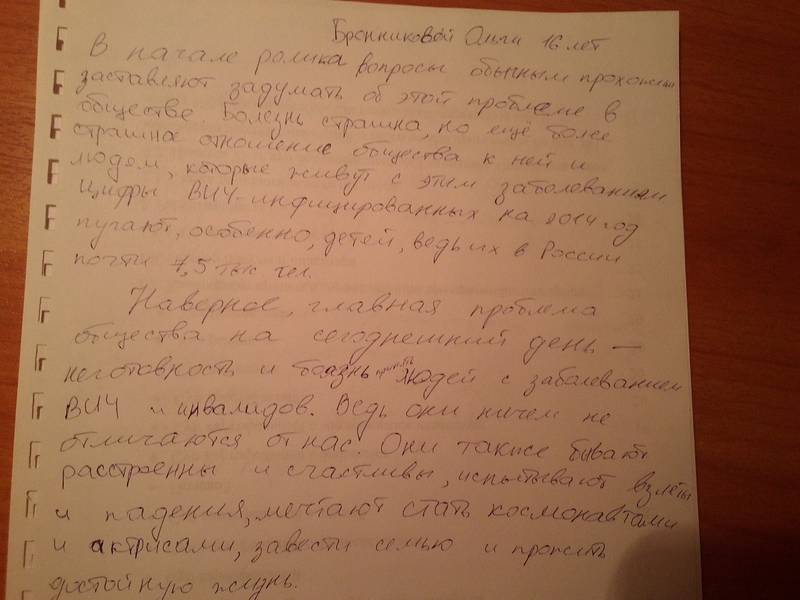 Бронниковой Ольги 16 лет
В начале ролика вопросы обычным прохожим
заставляют задумать об этой проблеме в
обществе. Болезнь страшна, но ещё более
страшное отношение общества к ней и
людем, которые живут с этим заболеванием
Цифры ВИЧ-инфицированных на 2014 год
пугают, особенно, детей, ведь их в России
почти 7,5 тыс чел.
Наверное, главная проблема
общества на сегоднешний день —
неготовность и боязнь принять людей с заболеванием
ВИЧ и инвалидов. Ведь они ничем не
отличаются от нас. Они также бывают
расстроенны и счастливы, испытывают взлеты
и падения, мечтают стать космонавтами
и актрисами, завести семью и прожить
достойную жизнь.